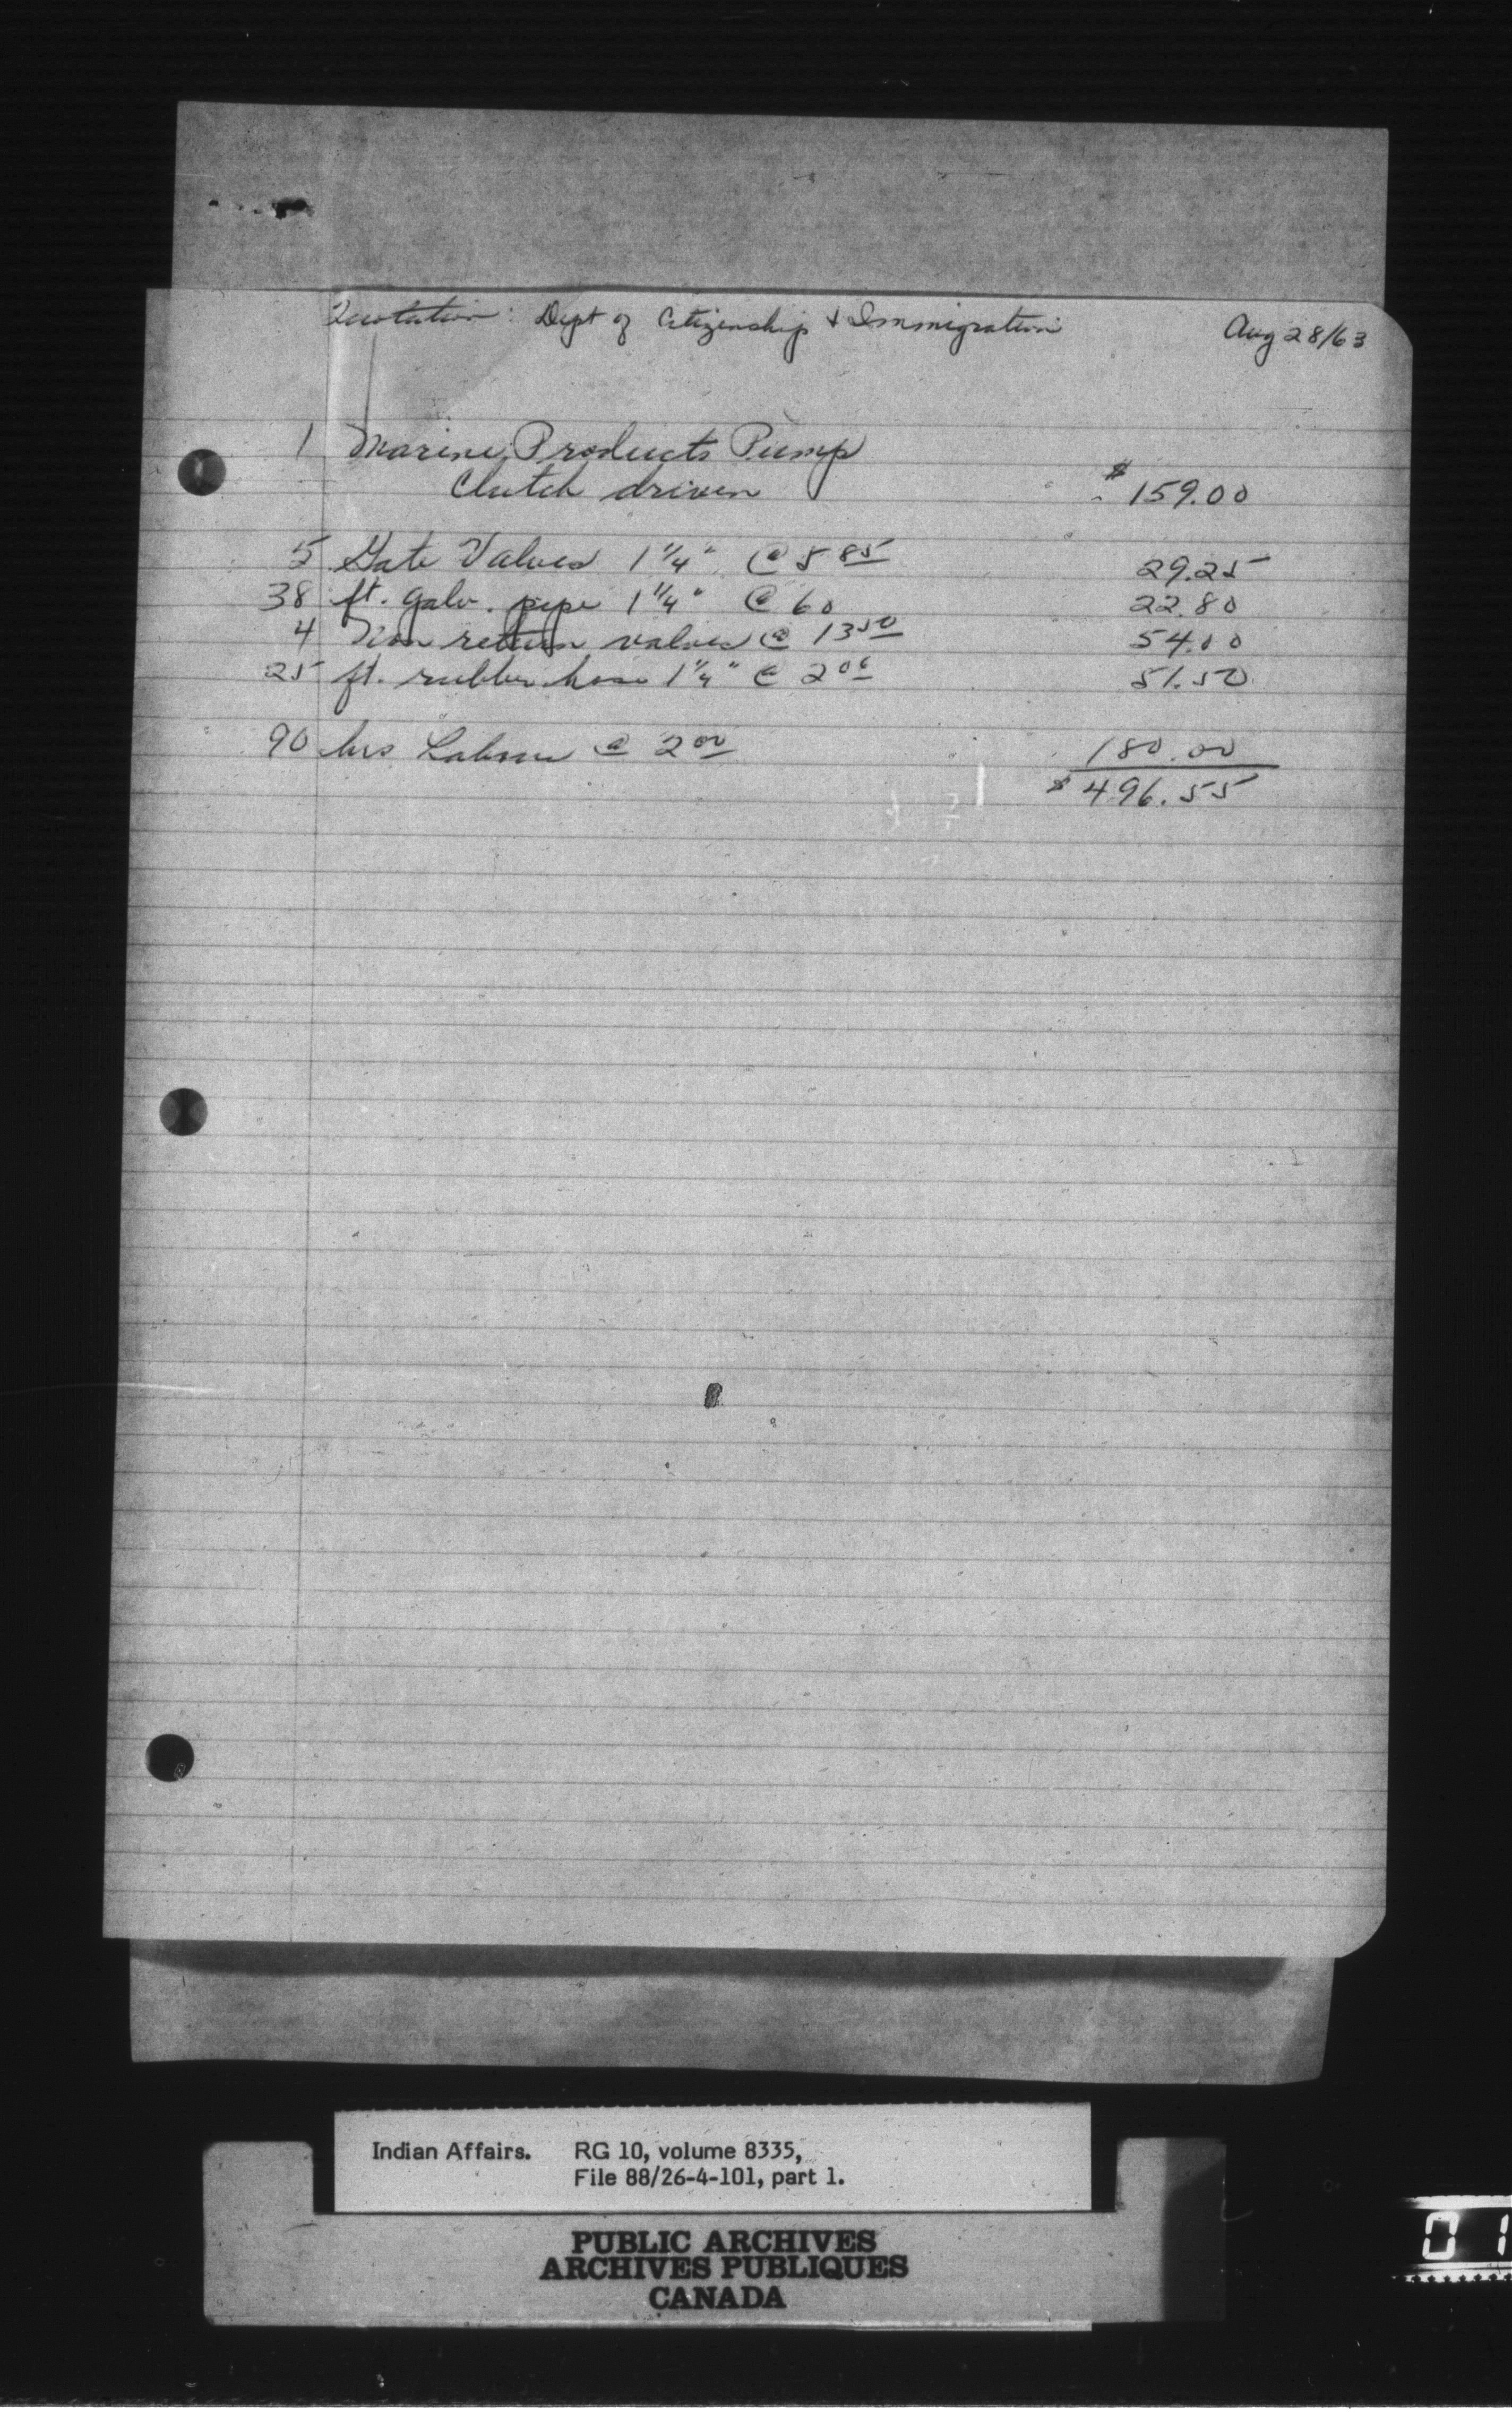 Quotation: Dept of Citizenship & Immigration Aug 28/63
1 Marine Products Pump
Clutch driven $159.00
5 Gate Valves 1 1/4" @ 5 85 29.25
38 ft. galv. pipe 1 1/4" @ 60 22.80
4 Non return valves @ 13 50 54.00
25 ft. rubber hose 1 1/4" @ 2 06 51.50
90 hrs Labour @ 2 00 180.00
$496.55
Indian Affairs. RG 10, volume 8335,
File 88/26-4-101, part 1.
PUBLIC ARCHIVES
ARCHIVES PUBLIQUES
CANADA
01